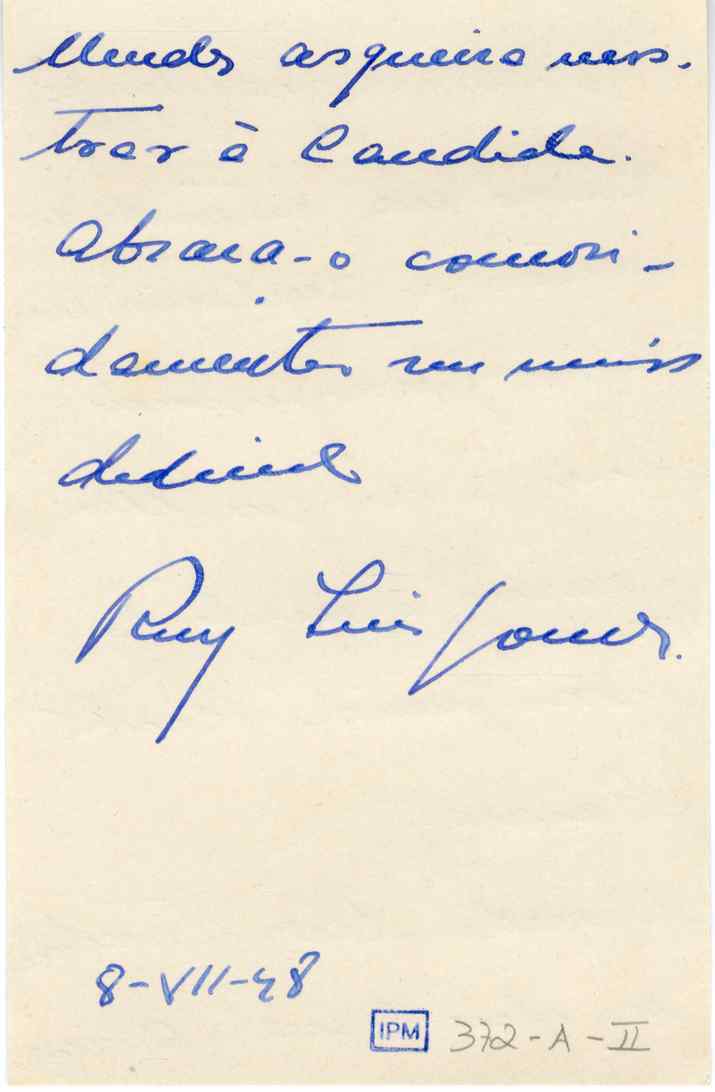 Mendes as queira mos-
trar à Candida.
Abraça-o comovi-
damente seu muito
dedicado
Ruy Luis Gomes.
8-VII-48
IPM 372-A-II